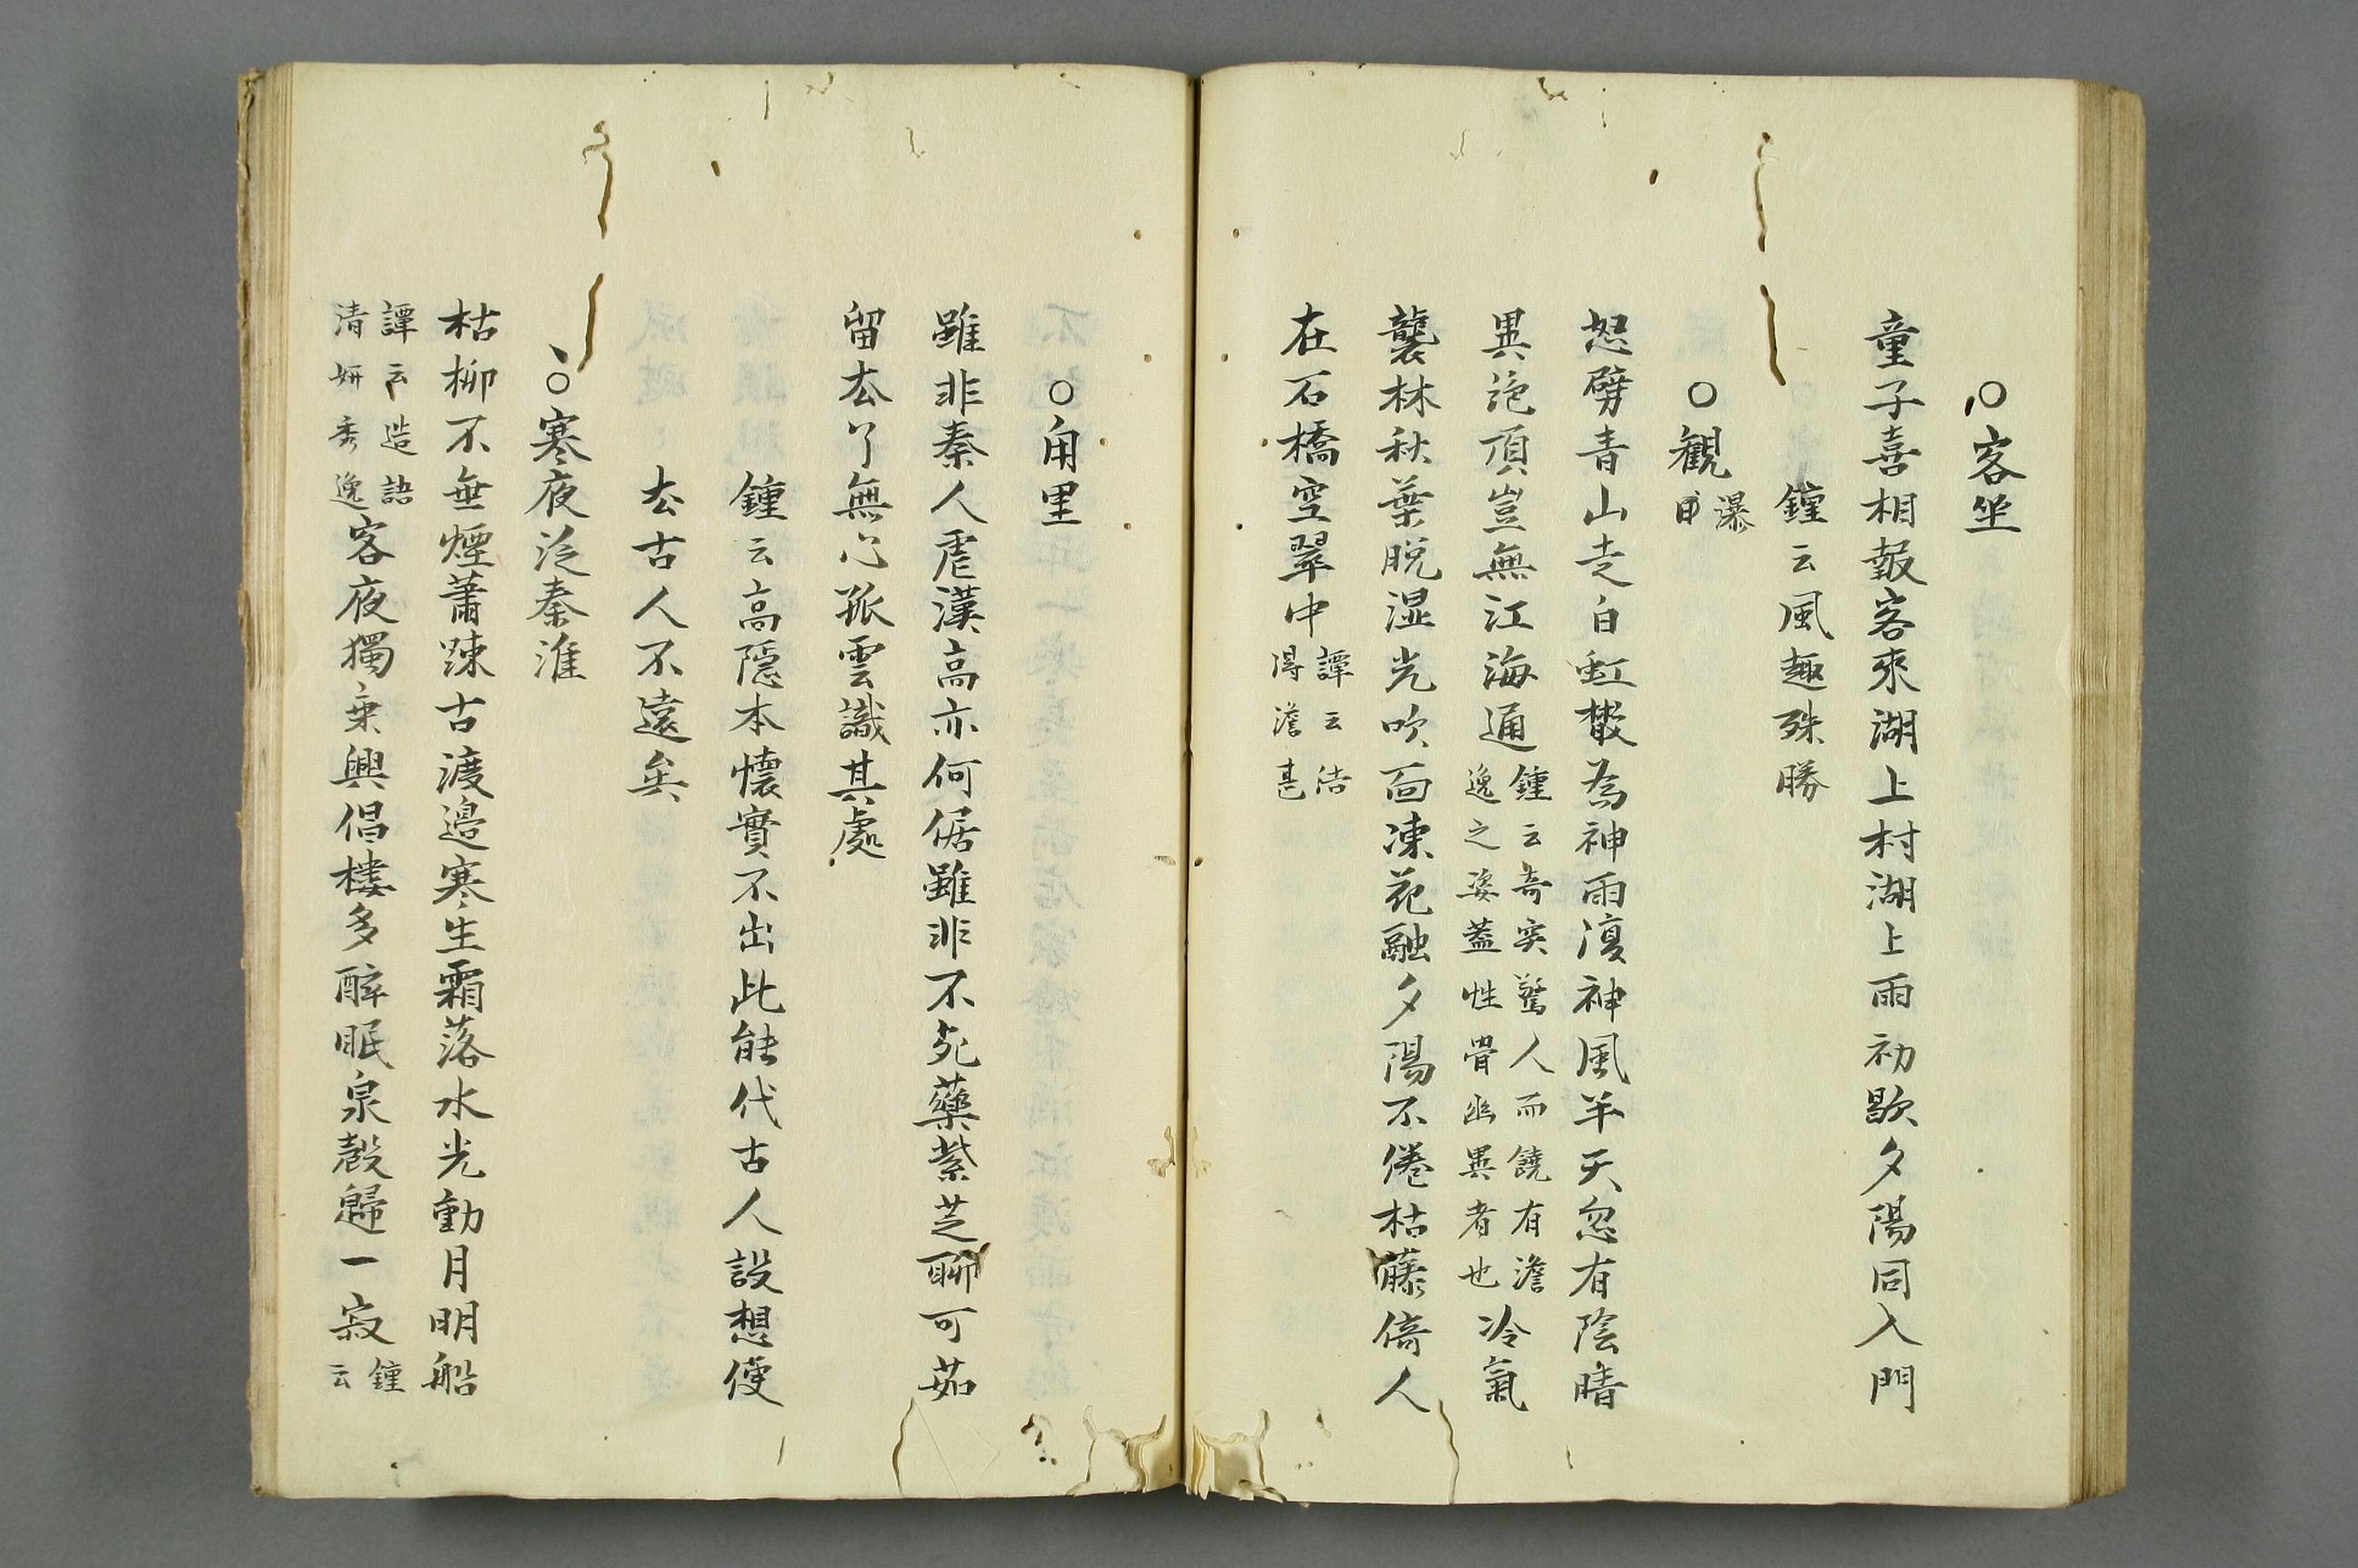 ○客坐
童子喜相報客來湖上村湖上雨初歇夕陽同入門
鍾云風趣殊勝
○觀瀑
怒劈青山走白虹散為神雨復神風半天忽有陰晴
異絶頂豈無江海通鍾云奇突驚人而饒有澹逸之姿蓋性骨幽異者也冷氣
襲林秋葉脱湿光吹面凍花融夕陽不倦枯藤倚人
在石橋空翠中譚云活得澹甚
○甪里
雖非秦人虐漢高亦何倨雖非不死藥紫芝聊可茹
留去了無心孤雲識其處
鍾云高隱本懷實不出此能代古人設想便
去古人不遠矣
○寒夜泛秦淮
枯柳不無煙蕭踈古渡邉寒生霜落水光動月明船
譚云造語清妍秀逸客夜獨乗興倡樓多醉眠泉聲歸一寂鍾云